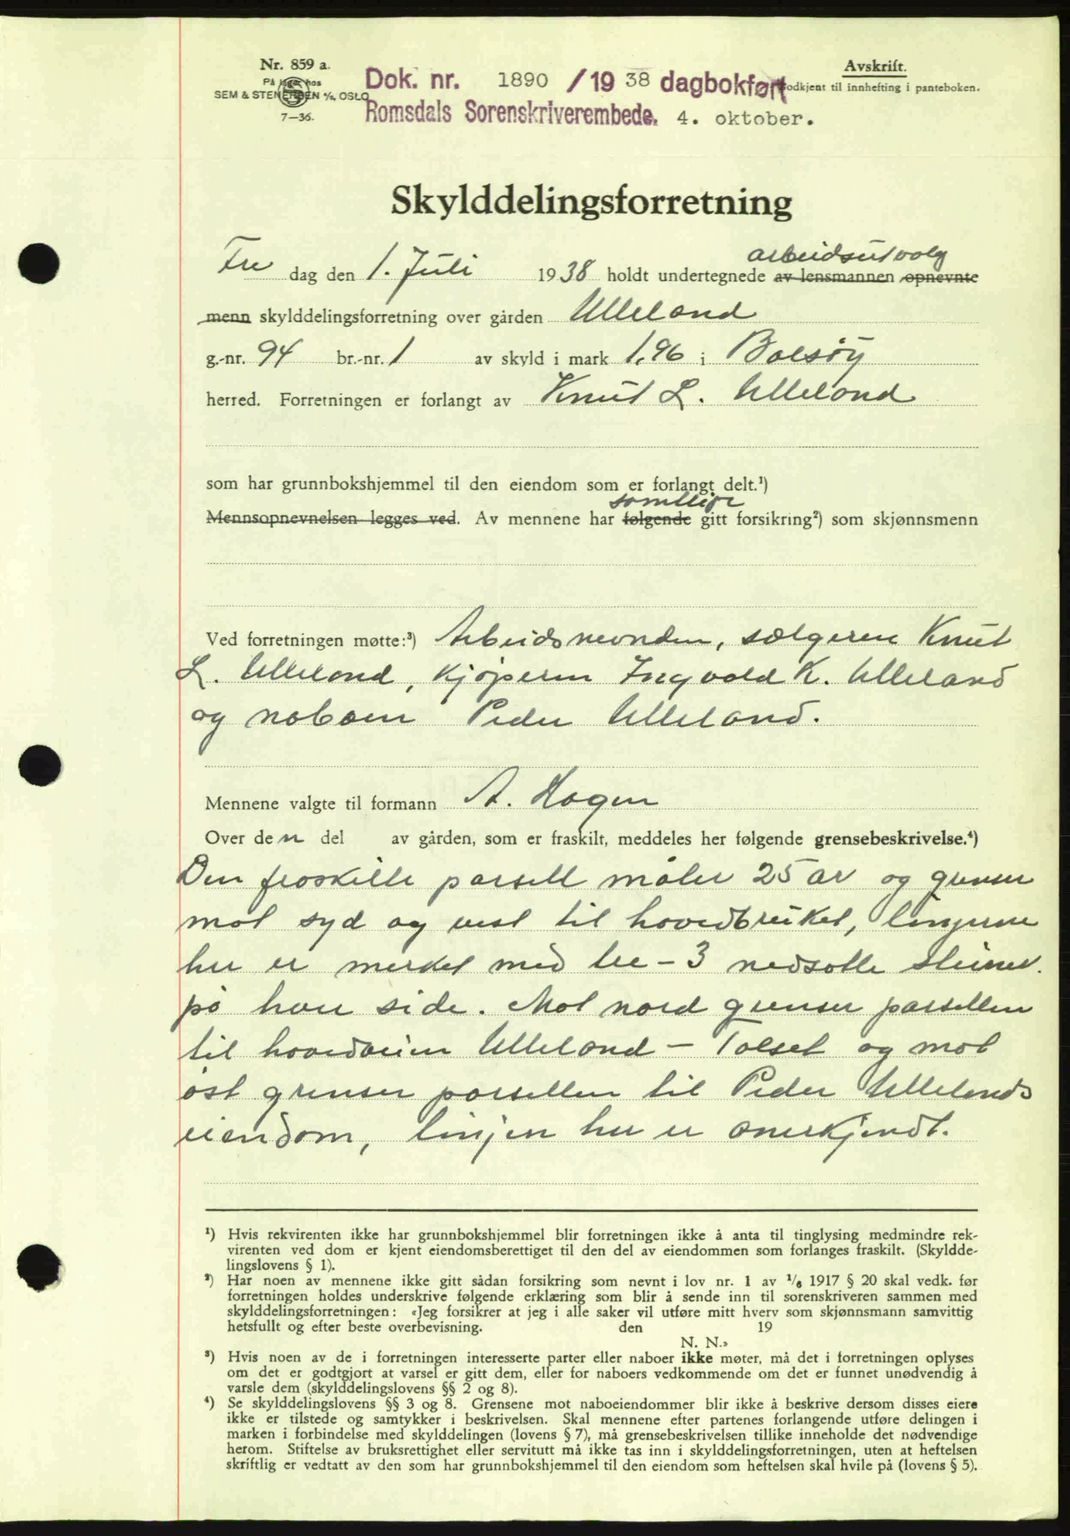 Nr. 859 a.
På lager hos
SEM & STENERSEN A/S, OSLO
7—36.
Dok. nr. 1890 /19 38 dagbokført
Romsdals Sorenskriverembede. 4. oktober.
Avskrift.
Godkjent til innhefting i panteboken.
Skylddelingsforretning
arbeidsutvalg
Fre dag den 1. Juli 1938 holdt undertegnede av lensmannen opnevnte
menn skylddelingsforretning over gården Ulleland
g.-nr. 94 br.-nr. 1 av skyld i mark 1,96 i Bolsøy
herred. Forretningen er forlangt av Knut L. Ulleland
som har grunnbokshjemmel til den eiendom som er forlangt delt.¹)
samtlige
Mennsopnevnelsen legges ved. Av mennene har følgende gitt forsikring²) som skjønnsmenn
Ved forretningen møtte:³) Arbeidsnevnden, sælgeren Knut
L. Ulleland, kjøperen Ingvald K. Ulleland
og naboen Peder Ulleland.
Mennene valgte til formann A. Hagen
Over den del av gården, som er fraskilt, meddeles her følgende grensebeskrivelse.⁴)
Den fraskilte parsell måler 25 ar og grenser
mot syd og vest til hovedbruket, linjerne
her er merket med tre - 3 nedsatte steiner.
på hver side. Mot nord grenser parsellen
til hovedveien Ulleland - Tolset og mot
øst grenser parsellen til Peder Ullelands
eiendom, linjen her er anerkjendt.
¹) Hvis rekvirenten ikke har grunnbokshjemmel blir forretningen ikke å anta til tinglysing medmindre rek-
virenten ved dom er kjent eiendomsberettiget til den del av eiendommen som forlanges fraskilt. (Skyldde-
lingslovens § 1).
²) Har noen av mennene ikke gitt sådan forsikring som nevnt i lov nr. 1 av ¹/₆ 1917 § 20 skal vedk. før
forretningen holdes underskrive følgende erklæring som blir å sende inn til sorenskriveren sammen med
skylddelingsforretningen: «Jeg forsikrer at jeg i alle saker vil utføre mitt hverv som skjønnsmann samvittig
hetsfullt og efter beste overbevisning. den 19
N. N.»
³) Hvis noen av de i forretningen interesserte parter eller naboer ikke møter, må det i forretningen oplyses
om det er godtgjort at varsel er gitt dem, eller for naboers vedkommende om det er funnet unødvendig å
varsle dem (skylddelingslovens §§ 2 og 8).
⁴) Se skylddelingslovens §§ 3 og 8. Grensene mot naboeiendommer blir ikke å beskrive dersom disses eiere
ikke er tilstede og samtykker i beskrivelsen. Skal mennene efter partenes forlangende utføre delingen i
marken i forbindelse med skylddelingen (lovens § 7), må grensebeskrivelsen tillike inneholde det nødvendige
herom. Stiftelse av bruksrettighet eller servitutt må ikke tas inn i skylddelingsforretningen, uten at heftelsen
skriftlig er vedtatt av den som har grunnbokshjemmel til den eiendom som heftelsen skal hvile på (lovens § 5).